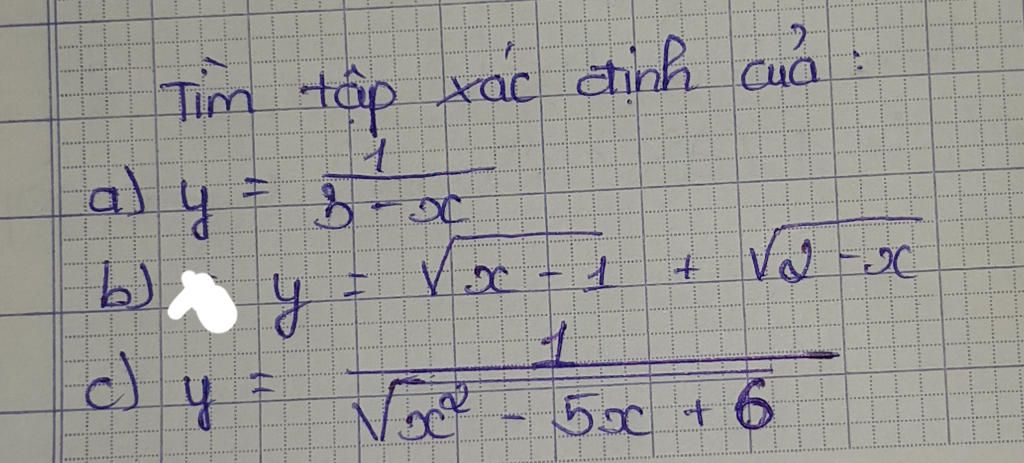 Tìm tập xác định của :
a) y = 1/(3 - x)
b) y = √(x - 1) + √(2 - x)
c) y = 1/√(x² - 5x + 6)